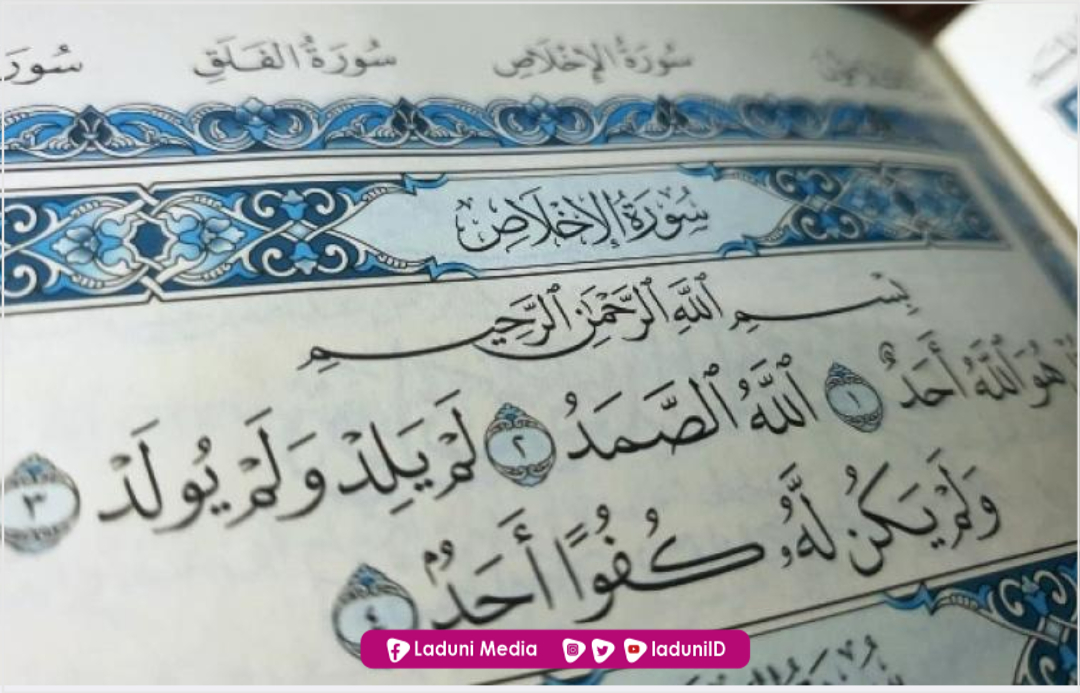 سُورَةُ الإِخْلَاصِ سُورَةُ الفَلَقِ
سُورَةُ الإِخْلَاصِ
بِسْمِ ٱللَّهِ ٱلرَّحْمَٰنِ ٱلرَّحِيمِ
هُوَ ٱللَّهُ أَحَدٌ ١ ٱللَّهُ ٱلصَّمَدُ ٢ لَمْ يَلِدْ وَلَمْ يُولَدْ ٣
وَلَمْ يَكُن لَّهُۥ كُفُوًا أَحَدٌۢ ٤
Laduni Media laduniID